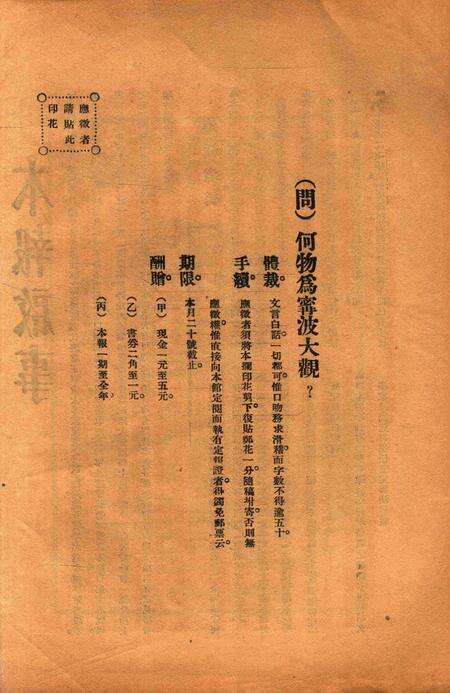 (問)何物爲甯波大觀?
體裁。文言白話。一切都可。惟口吻務求滑稽。而字數不得逾五十。
手續。應徵者須將本欄印花剪下。復貼郵花一分。隨稿坿寄。否則無
應徵權。惟直接向本館定閱而執有定報證者。得鐲免郵票云。
期限。本月二十號截止。
酬贈。(甲)現金一元至五元。
(乙)書劵二角至一元。
(丙)本報一期至全年。
應徵者
請貼此
印花
本報啟事